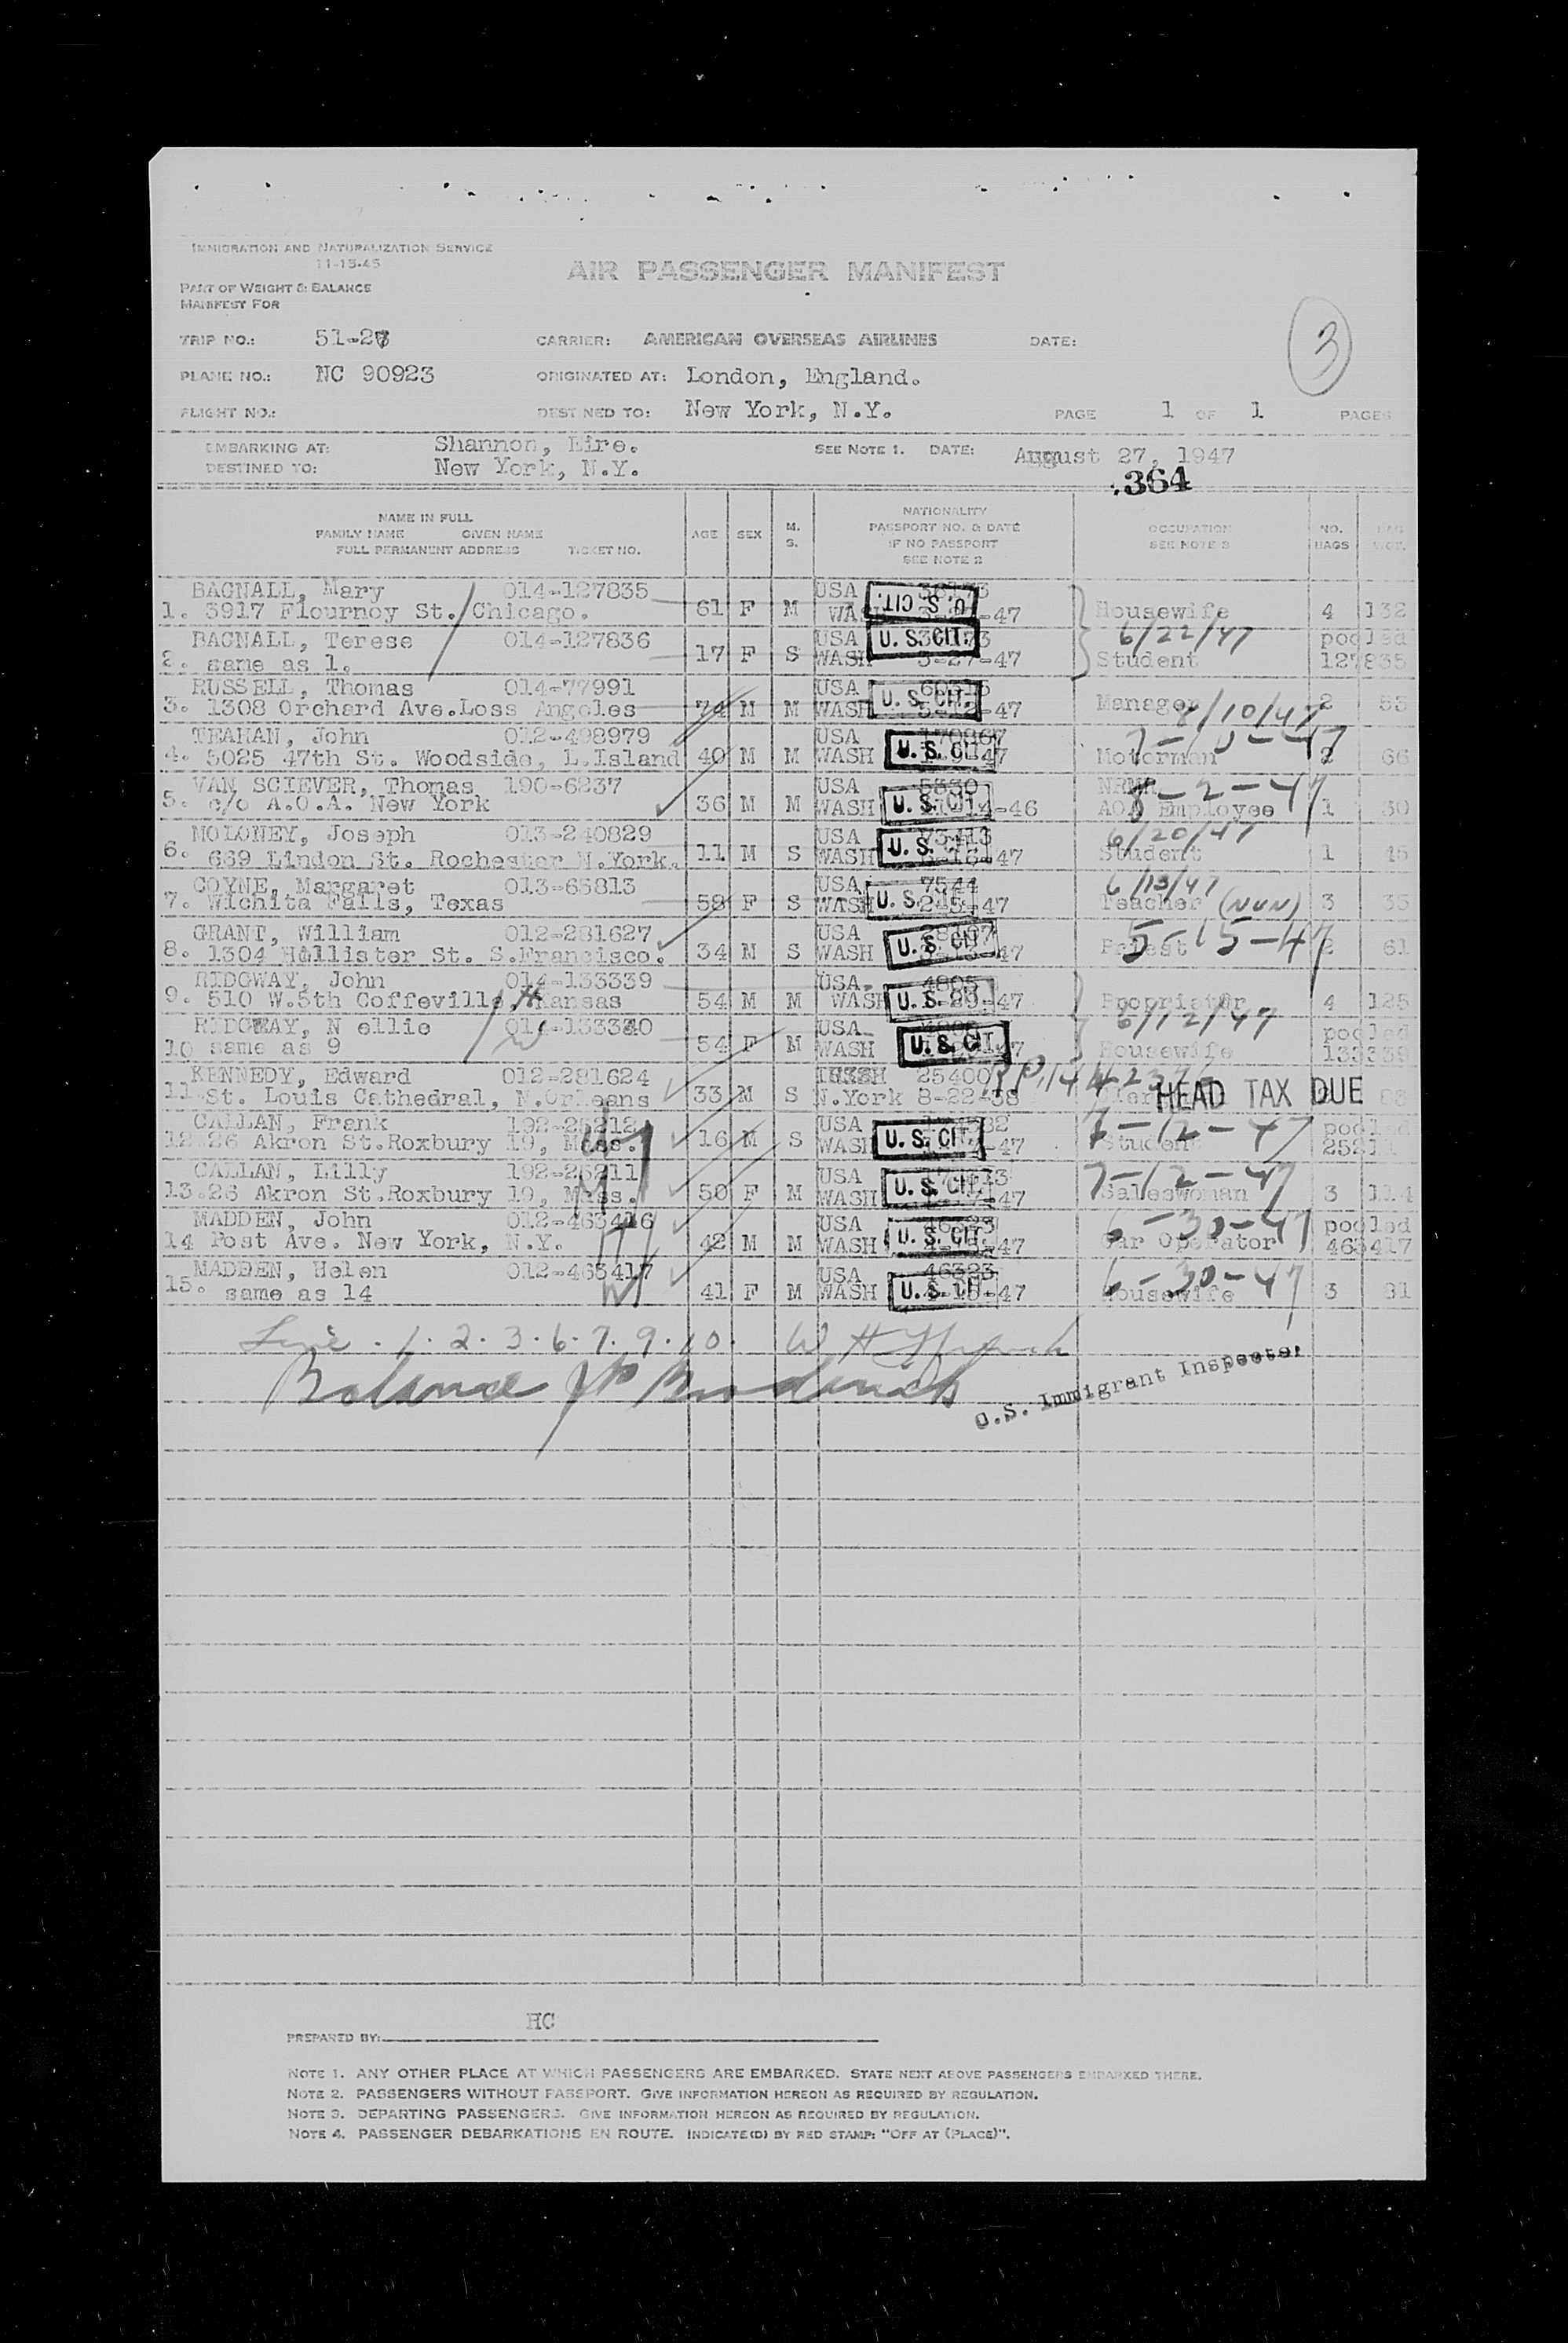 IMMIGRATION AND NATURALIZATION SERVICE
11-15-45
AIR PASSENGER MANIFEST
PART OF WEIGHT & BALANCE
MANIFEST FOR
3
TRIP NO.: 51-27 CARRIER: AMERICAN OVERSEAS AIRLINES DATE:
PLANE NO.: NC 90923 ORIGINATED AT: London, England.
FLIGHT NO.: DESTINED TO: New York, N.Y. PAGE 1 OF 1 PAGES
EMBARKING AT: Shannon, Eire. SEE NOTE 1. DATE: August 27, 1947
DESTINED TO: New York, N.Y.
364
NAME IN FULL
FAMILY NAME GIVEN NAME
FULL PERMANENT ADDRESS TICKET NO.
AGE SEX M. S.
NATIONALITY
PASSPORT NO. & DATE
IF NO PASSPORT
SEE NOTE 2
OCCUPATION
SEE NOTE 3
NO. BAGS
BAG WGT.
BAGNALL, Mary 014-127835 USA
1. 3917 Flournoy St. Chicago. 61 F M WASH -47 U. S. CIT. Housewife 4 132
BAGNALL, Terese 014-127836 USA U. S. CIT. 6/22/47 pooled
2. same as 1. 17 F S WASH 3-27-47 Student 127835
RUSSELL, Thomas 014-77991 USA U. S. CIT.
3. 1308 Orchard Ave.Loss Angeles 74 M M WASH -47 Manager /10/47 2 53
TEAHAN, John 012-498979 USA
4. 5025 47th St. Woodside, L.Island 40 M M WASH U. S. CIT. 47 Motorman 2 66
VAN SCIEVER, Thomas 190-6237 USA 5530 8-2-47
5. c/o A.O.A. New York 36 M M WASH U. S. CIT. 14-46 AOA Employee 1 30
MOLONEY, Joseph 013-240829 USA 73413 6/20/47
6. 669 Lindon St. Rochester N.York. 11 M S WASH U. S. -47 Student 1 45
COYNE, Margaret 013-63813 USA 7544 6/13/47
7. Wichita Falls, Texas 58 F S WASH U. S. 2-5-47 Teacher (NUN) 3 35
GRANT, William 012-281627 USA 5-15-47
8. 1304 Hollister St. S.Francisco. 34 M S WASH U. S. CIT. 47 Priest 2 61
RIDGWAY, John 014-133339 USA 4805
9. 510 W.5th Coffeville, Kansas 54 M M WASH U. S. -29-47 Proprietor 4 125
RIDGWAY, N ellie 014-133340 USA 6/12/47 pooled
10 same as 9 54 F M WASH U. S. CIT. Housewife 133339
KENNEDY, Edward 012-281624 IRISH 25400
11 St. Louis Cathedral, N.Orleans 33 M S N.York 8-22-38 HEAD TAX DUE
CALLAN, Frank 192-25212 USA 7-12-47 pooled
12.26 Akron St.Roxbury 19, Mass. 16 M S WASH U. S. CIT. -47 Student 25211
CALLAN, Lilly 192-25211 USA 7-12-47
13.26 Akron St.Roxbury 19, Mass. 50 F M WASH U. S. CIT. -47 Saleswoman 3 114
MADDEN, John 012-463416 USA 6-30-47 pooled
14 Post Ave. New York, N.Y. 42 M M WASH U. S. CIT. -47 Car Operator 463417
MADDEN, Helen 012-463417 USA 46323 6-30-47
15. same as 14 41 F M WASH U. S. -47 Housewife 3 91
Line . 1. 2. 3. 6. 7. 9. 10. W H
Balance
U.S. Immigrant Inspector
HC
PREPARED BY:
NOTE 1. ANY OTHER PLACE AT WHICH PASSENGERS ARE EMBARKED. STATE NEXT ABOVE PASSENGERS EMBARKED THERE.
NOTE 2. PASSENGERS WITHOUT PASSPORT. GIVE INFORMATION HEREON AS REQUIRED BY REGULATION.
NOTE 3. DEPARTING PASSENGERS. GIVE INFORMATION HEREON AS REQUIRED BY REGULATION.
NOTE 4. PASSENGER DEBARKATIONS EN ROUTE. INDICATE(D) BY RED STAMP: "OFF AT (PLACE)".